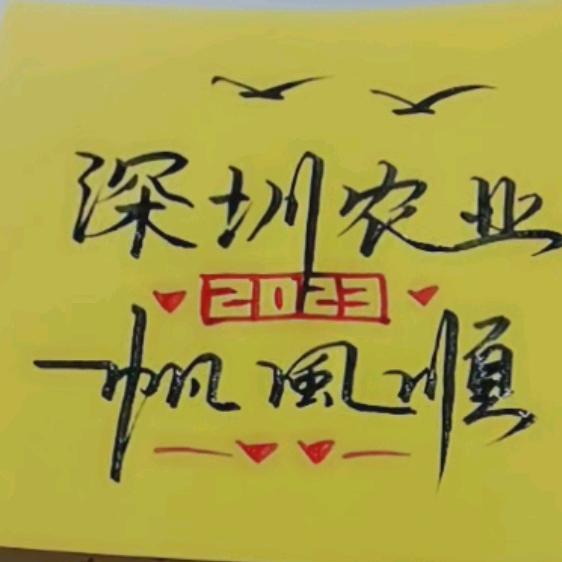 深圳农业
2023
一帆風順